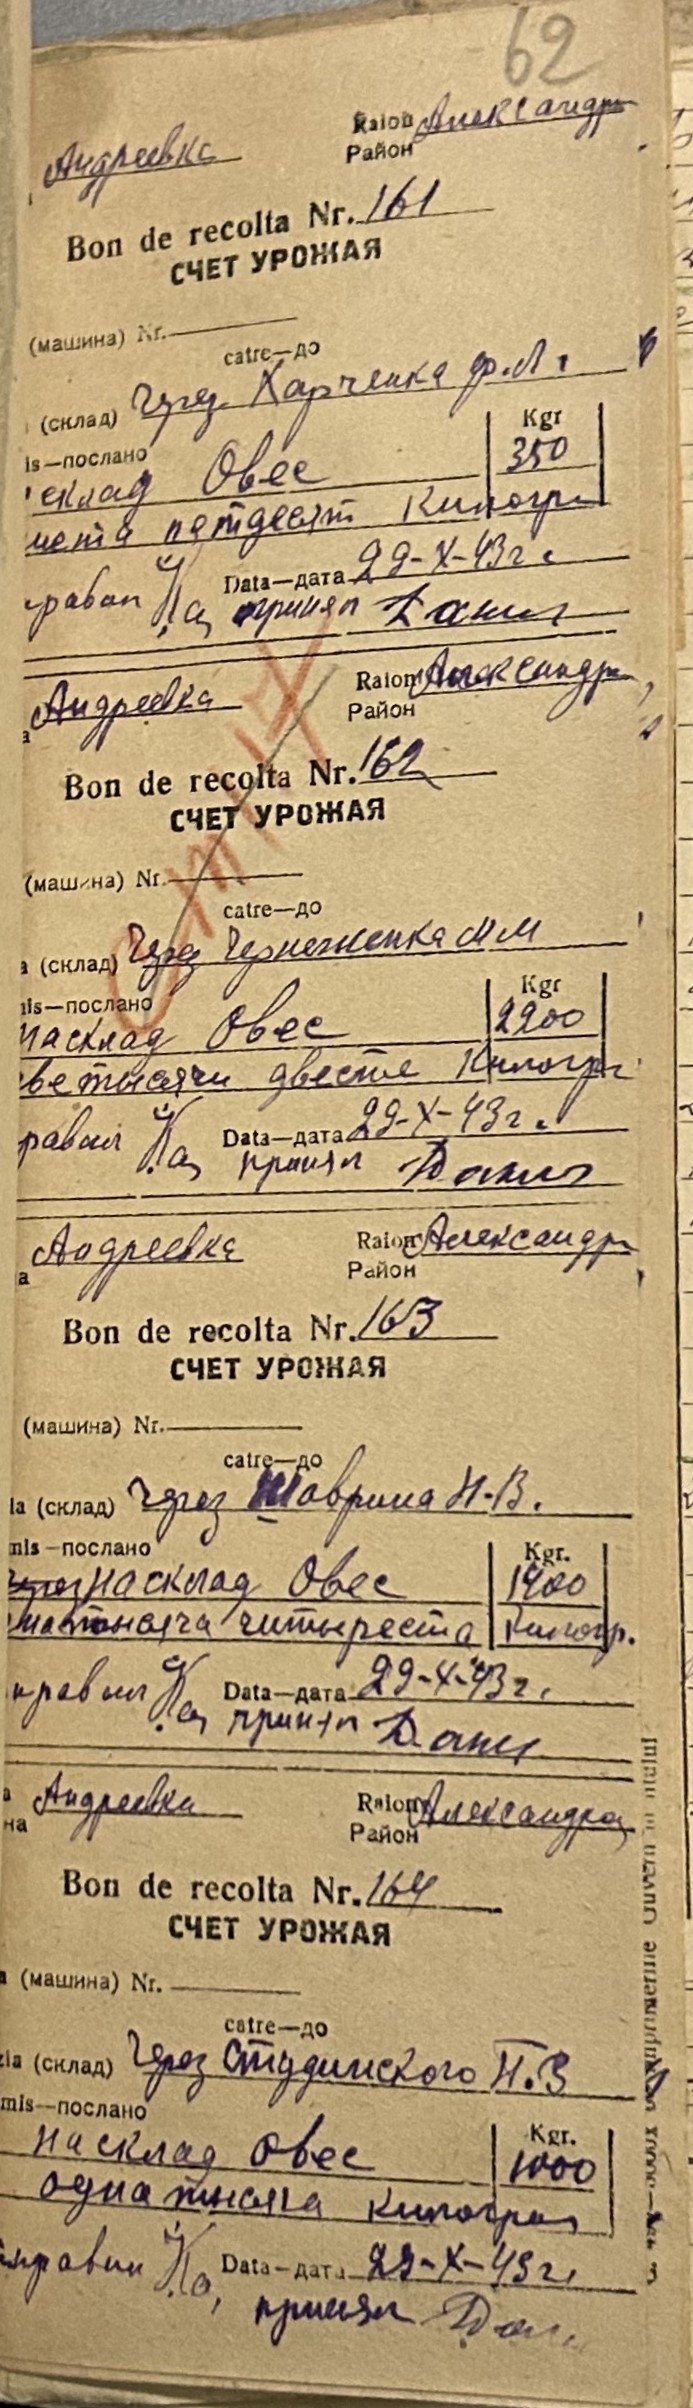 62
Андреевка Raion Александр
Район
Bon de recolta Nr. 161
СЧЕТ УРОЖАЯ
(машина) Nr.
catre—до
(склад) Через Харченка ф.Л.
is—послано Kgr
склад Овес 350
пятдесят Килогр
Data—дата 29-X-43г.
принял
Андреевка Raion Александр
Район
Bon de recolta Nr. 162
СЧЕТ УРОЖАЯ
(машина) Nr.
catre—до
а (склад) Через ММ
is—послано Kgr
насклад Овес 2200
ве тысячи двести Килогр
равил Data—дата 29-X-43г.
принял
Андреевка Raion Александр
а Район
Bon de recolta Nr. 163
СЧЕТ УРОЖАЯ
(машина) Nr.
catre—до
ia (склад) Через Шаврина Н.В.
mis—послано Kgr.
насклад Овес 1400
тысяча читыреста Килогр.
правил Data—дата 29-X-43г.
принял
Андреевка Raion Александр
на Район
Bon de recolta Nr. 164
СЧЕТ УРОЖАЯ
(машина) Nr.
catre—до
zia (склад) Через Студинского Н.З
mis—послано Kgr.
насклад Овес 1000
одна тысяча килограм
правил Data—дата 29-X-43г.
принял